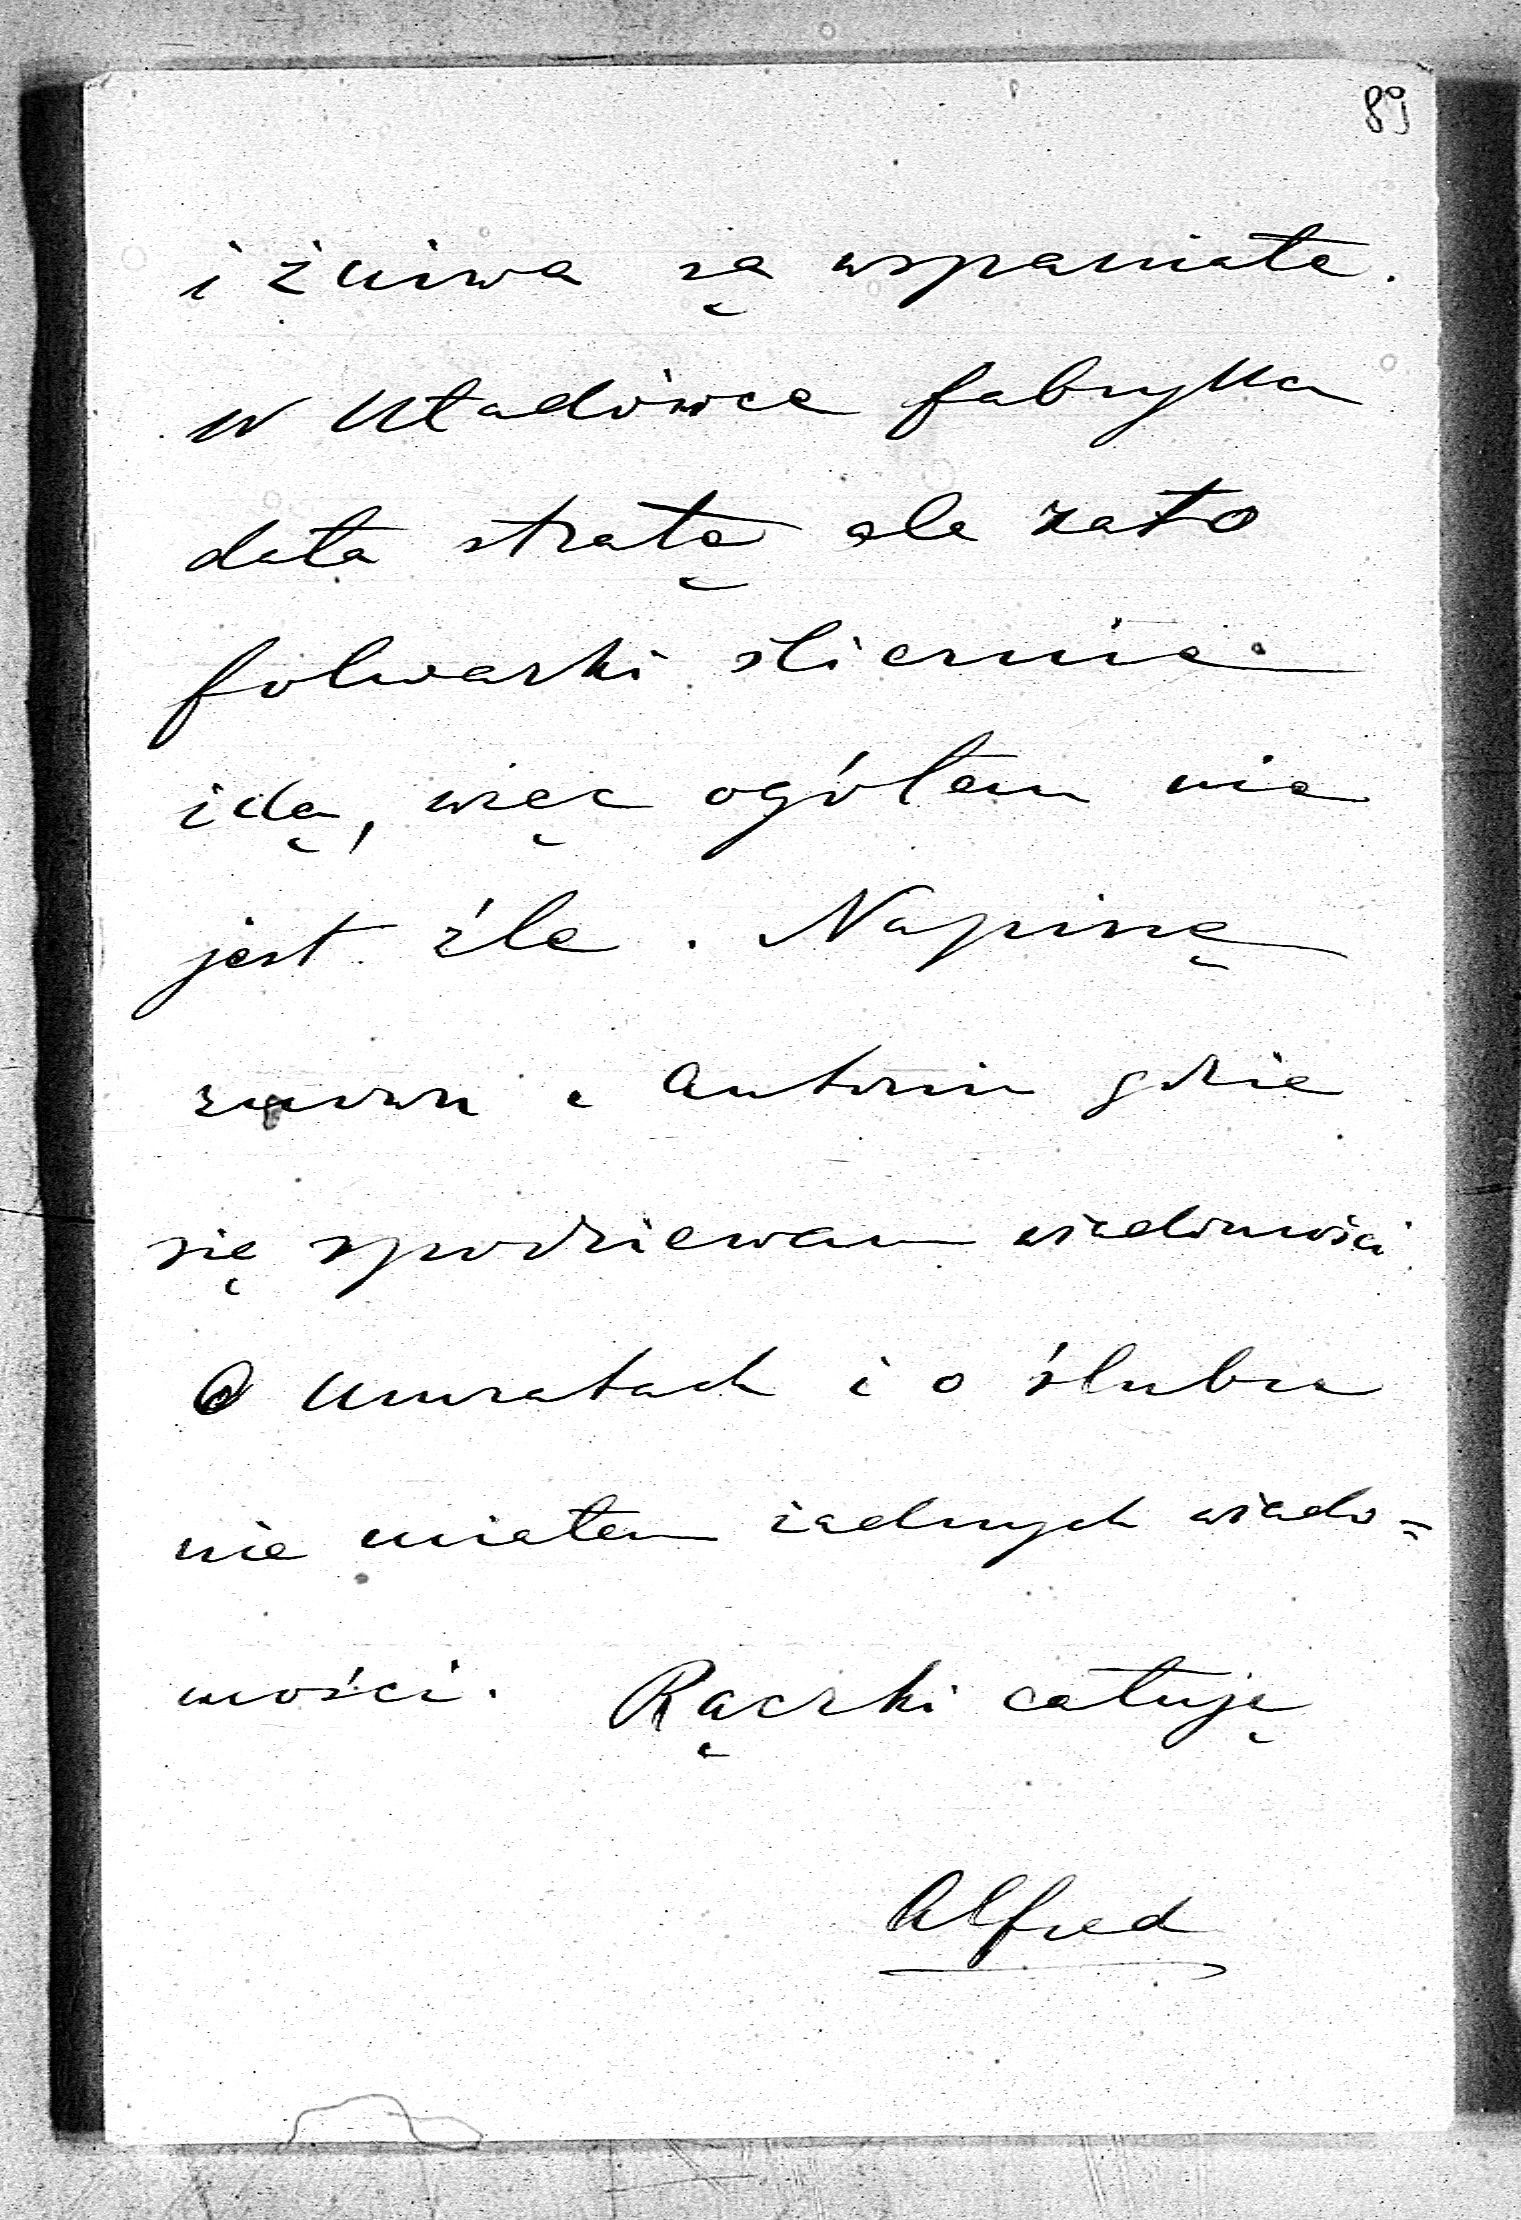 89
i żniwa są wspaniałe.
W Uładówce fabryka
dała stratę ale zato
folwarki ślicznie
idą, więc ogółem nie
jest źle. Napiszę
znowu z Antonin gdzie
się spodziewam wiadomości
O Muratach i o ślubie
nie miałem żadnych wiado=
mości. Rączki całuję
Alfred